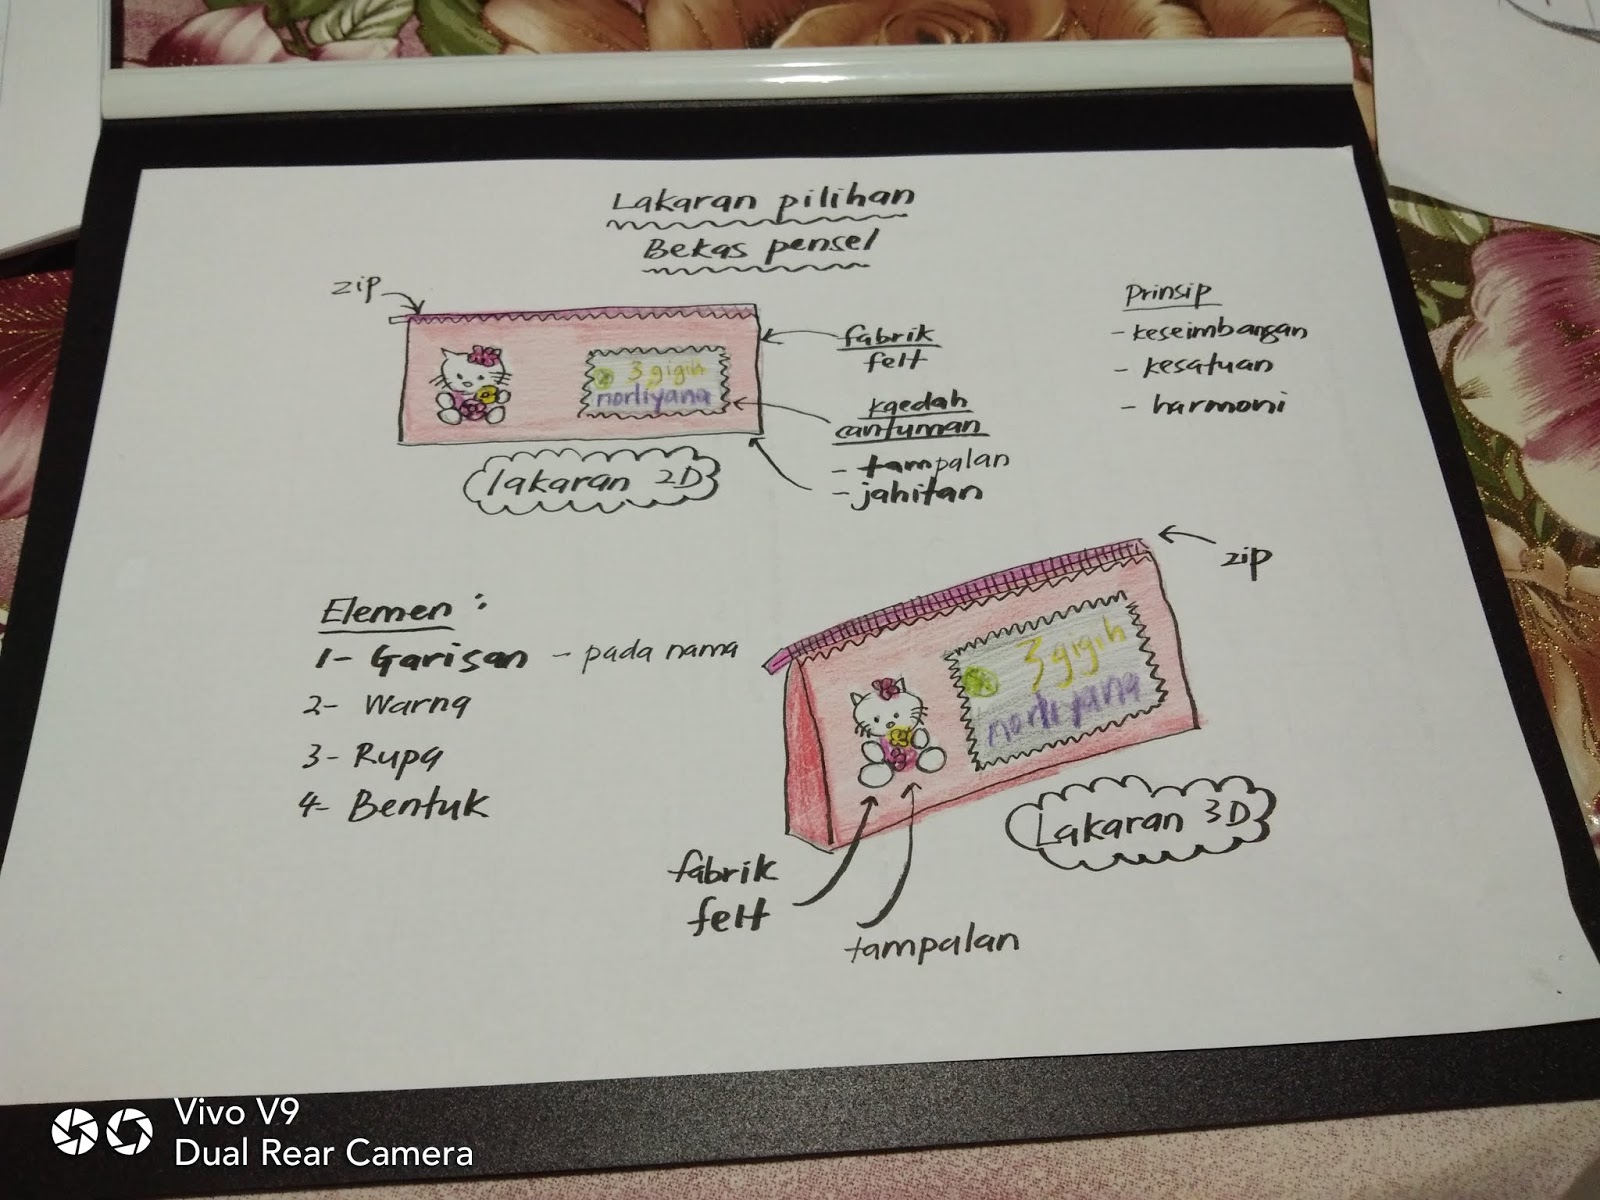 Lakaran pilihan
Bekas pensel
zip
3 gigih
norliyana
fabrik
felt
kaedah
cantuman
- tampalan
- jahitan
lakaran 2D
Prinsip
- keseimbangan
- kesatuan
- harmoni
Elemen :
1- Garisan - pada nama
2- Warna
3- Rupa
4- Bentuk
zip
3 gigih
norliyana
Lakaran 3D
fabrik
felt
tampalan
Vivo V9
Dual Rear Camera